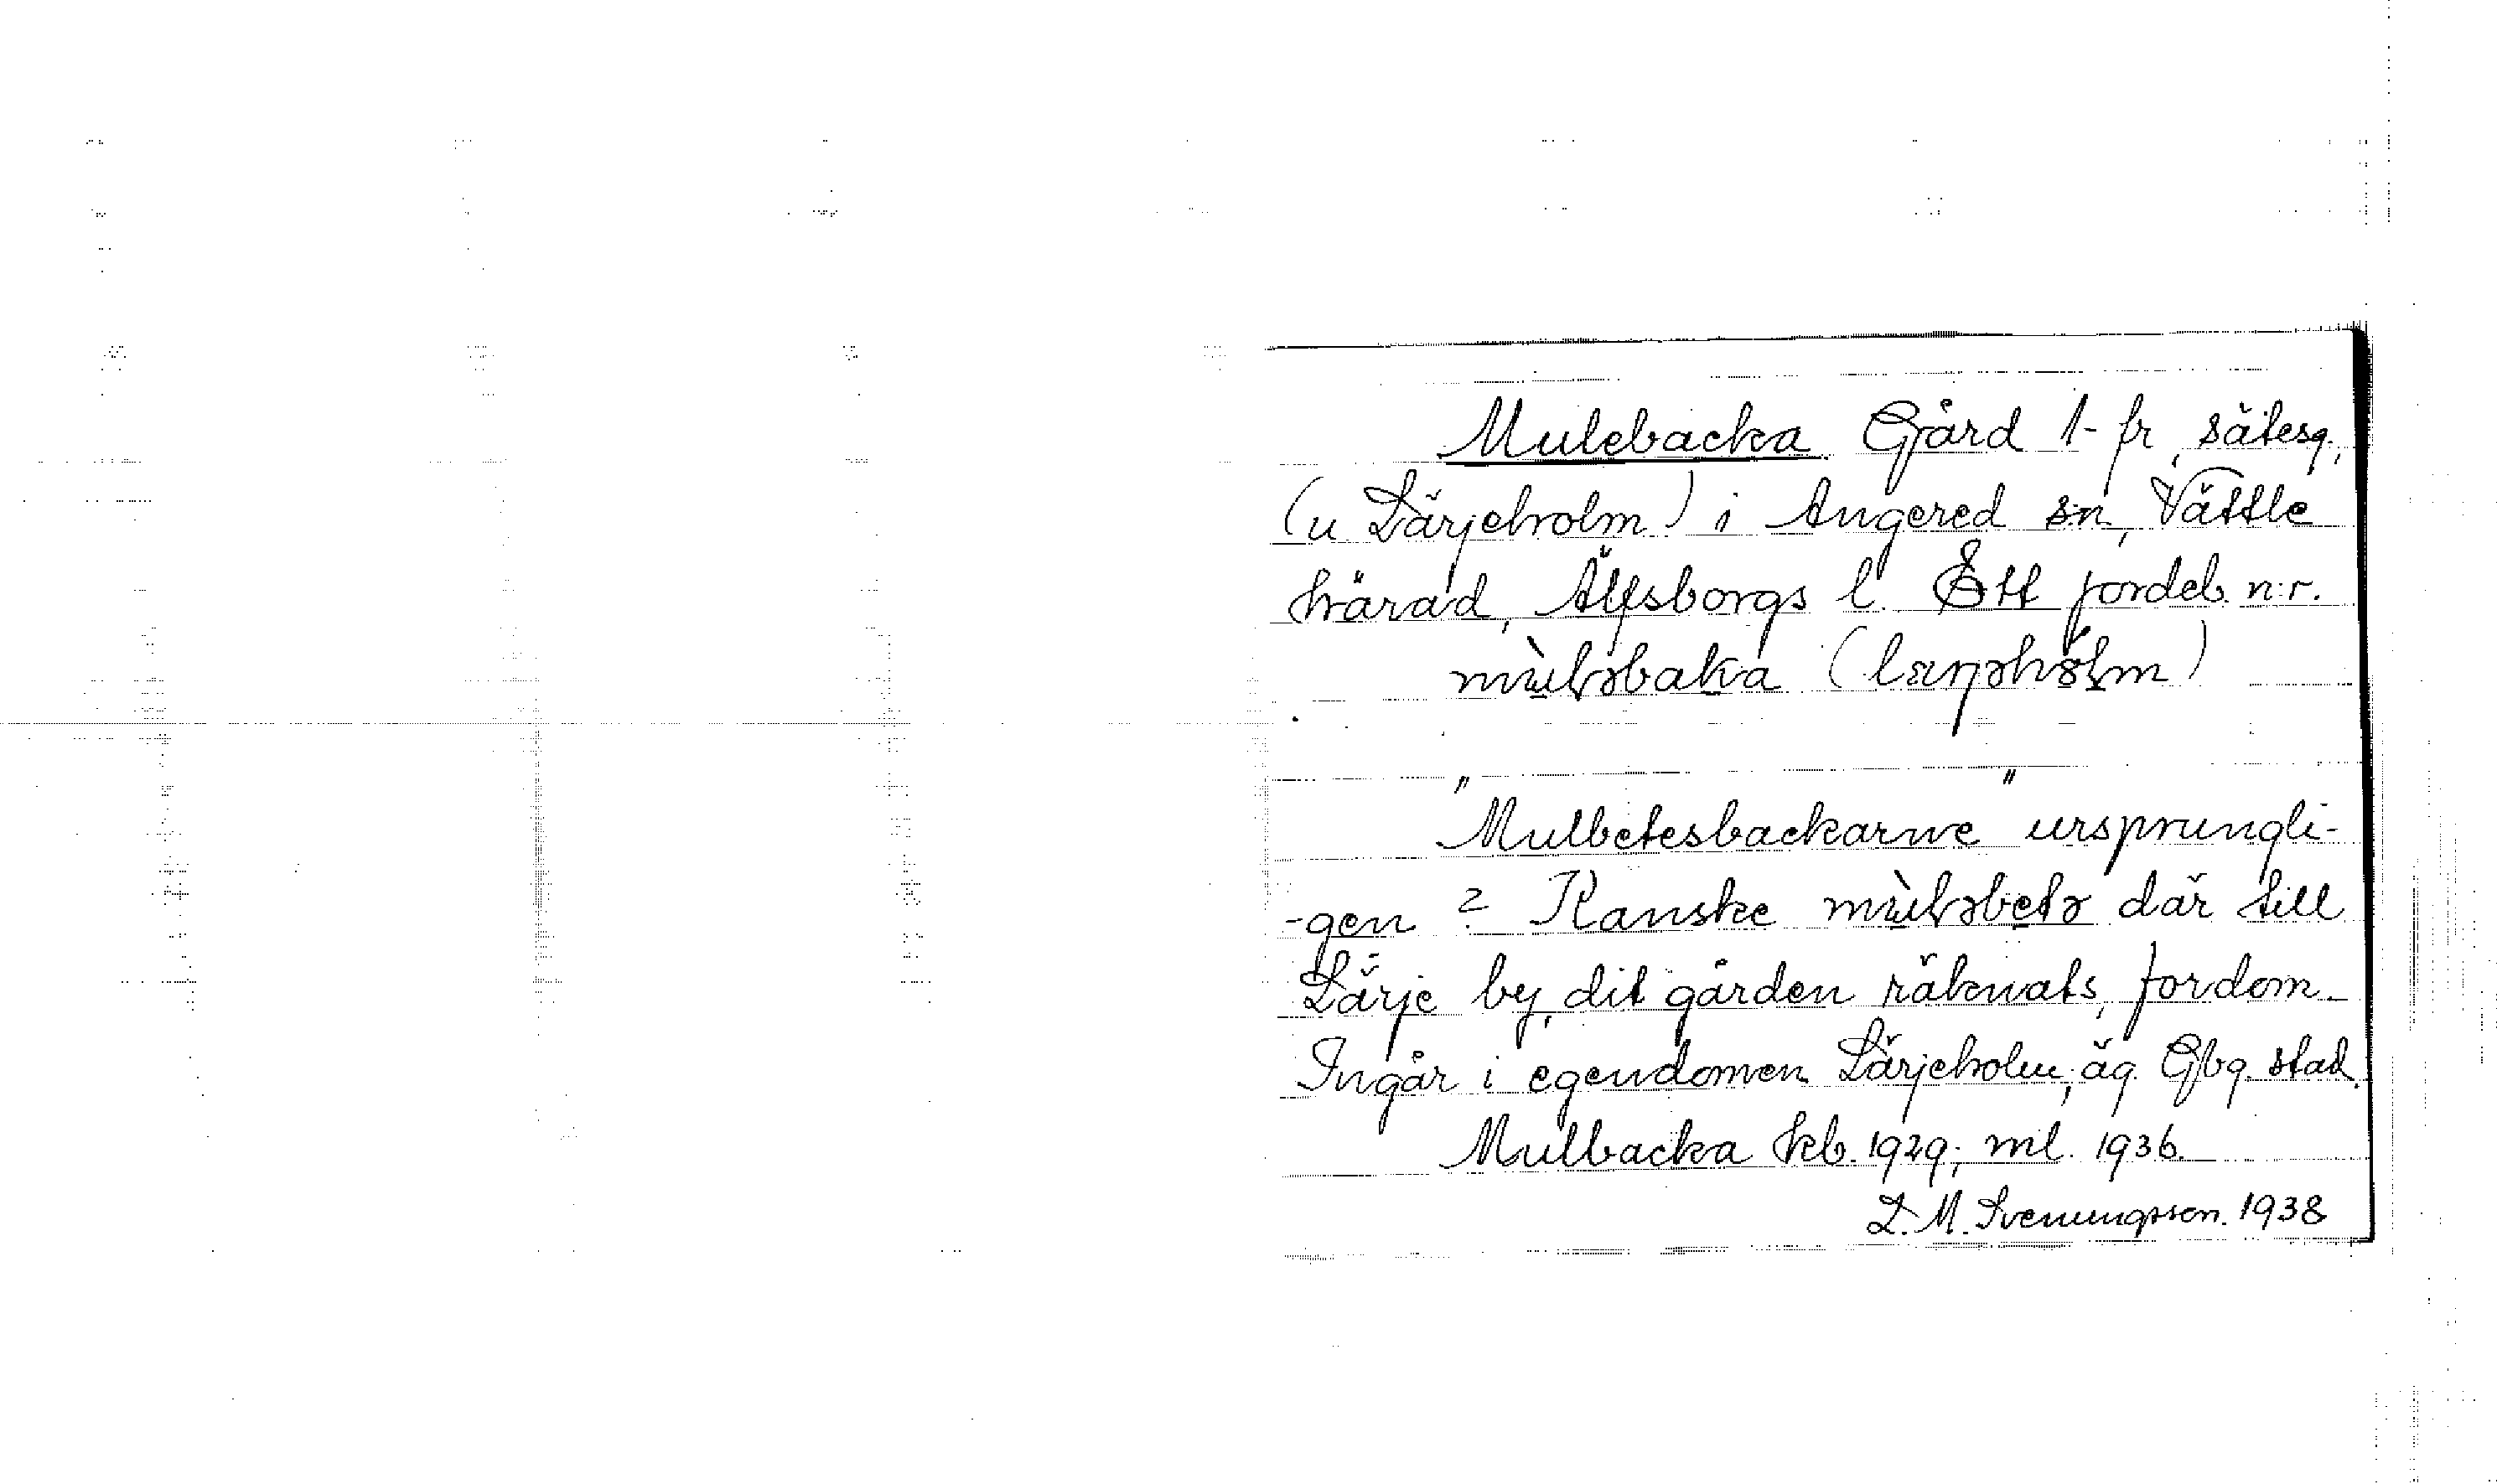 Mulebacka Gård 1- fr, sätesg.,
(u Lärjeholm) i Angered s:n, Vättle
härad, Älfsborgs l. Ett jordeb. n:r.
mùləbaka (lærjəhålm)
"Mulbetesbackarne" ursprungli-
-gen? Kanske mùləbetə där till
Lärje by, dit gården räknats, fordom.
Ingår i egendomen Lärjeholm, äg. Gbg. stad.
Mulbacka kb. 1929; ml. 1936.
L. M. Svenungsson. 1938